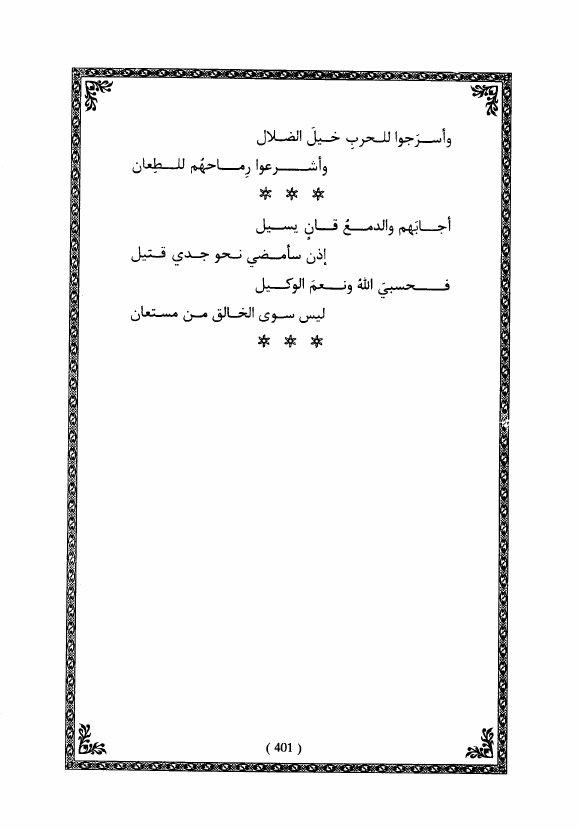 وأسرَجوا للحربِ خيلَ الضلال
وأشرعوا رِماحهُم للطِعان
* * *
أجابَهم والدمعُ قانٍ يسيل
إذن سأمضي نحو جدي قتيل
فحسبيَ اللهُ ونعمَ الوكيل
ليس سوى الخالق من مستعان
* * *
( 401 )